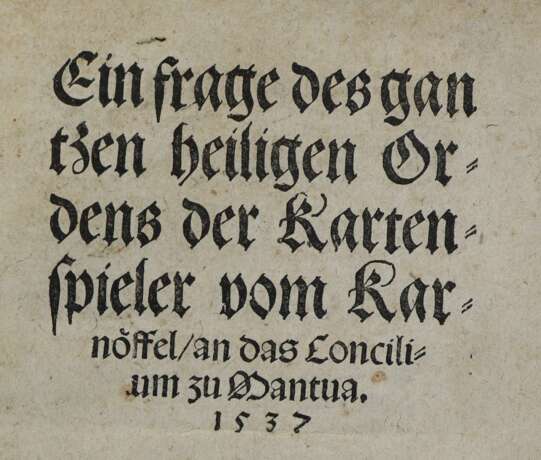 Ein frage des gan
tzen heiligen Or⸗
dens der Karten⸗
spieler vom Kar⸗
nöffel/an das Concili⸗
um zu Mantua.
1537